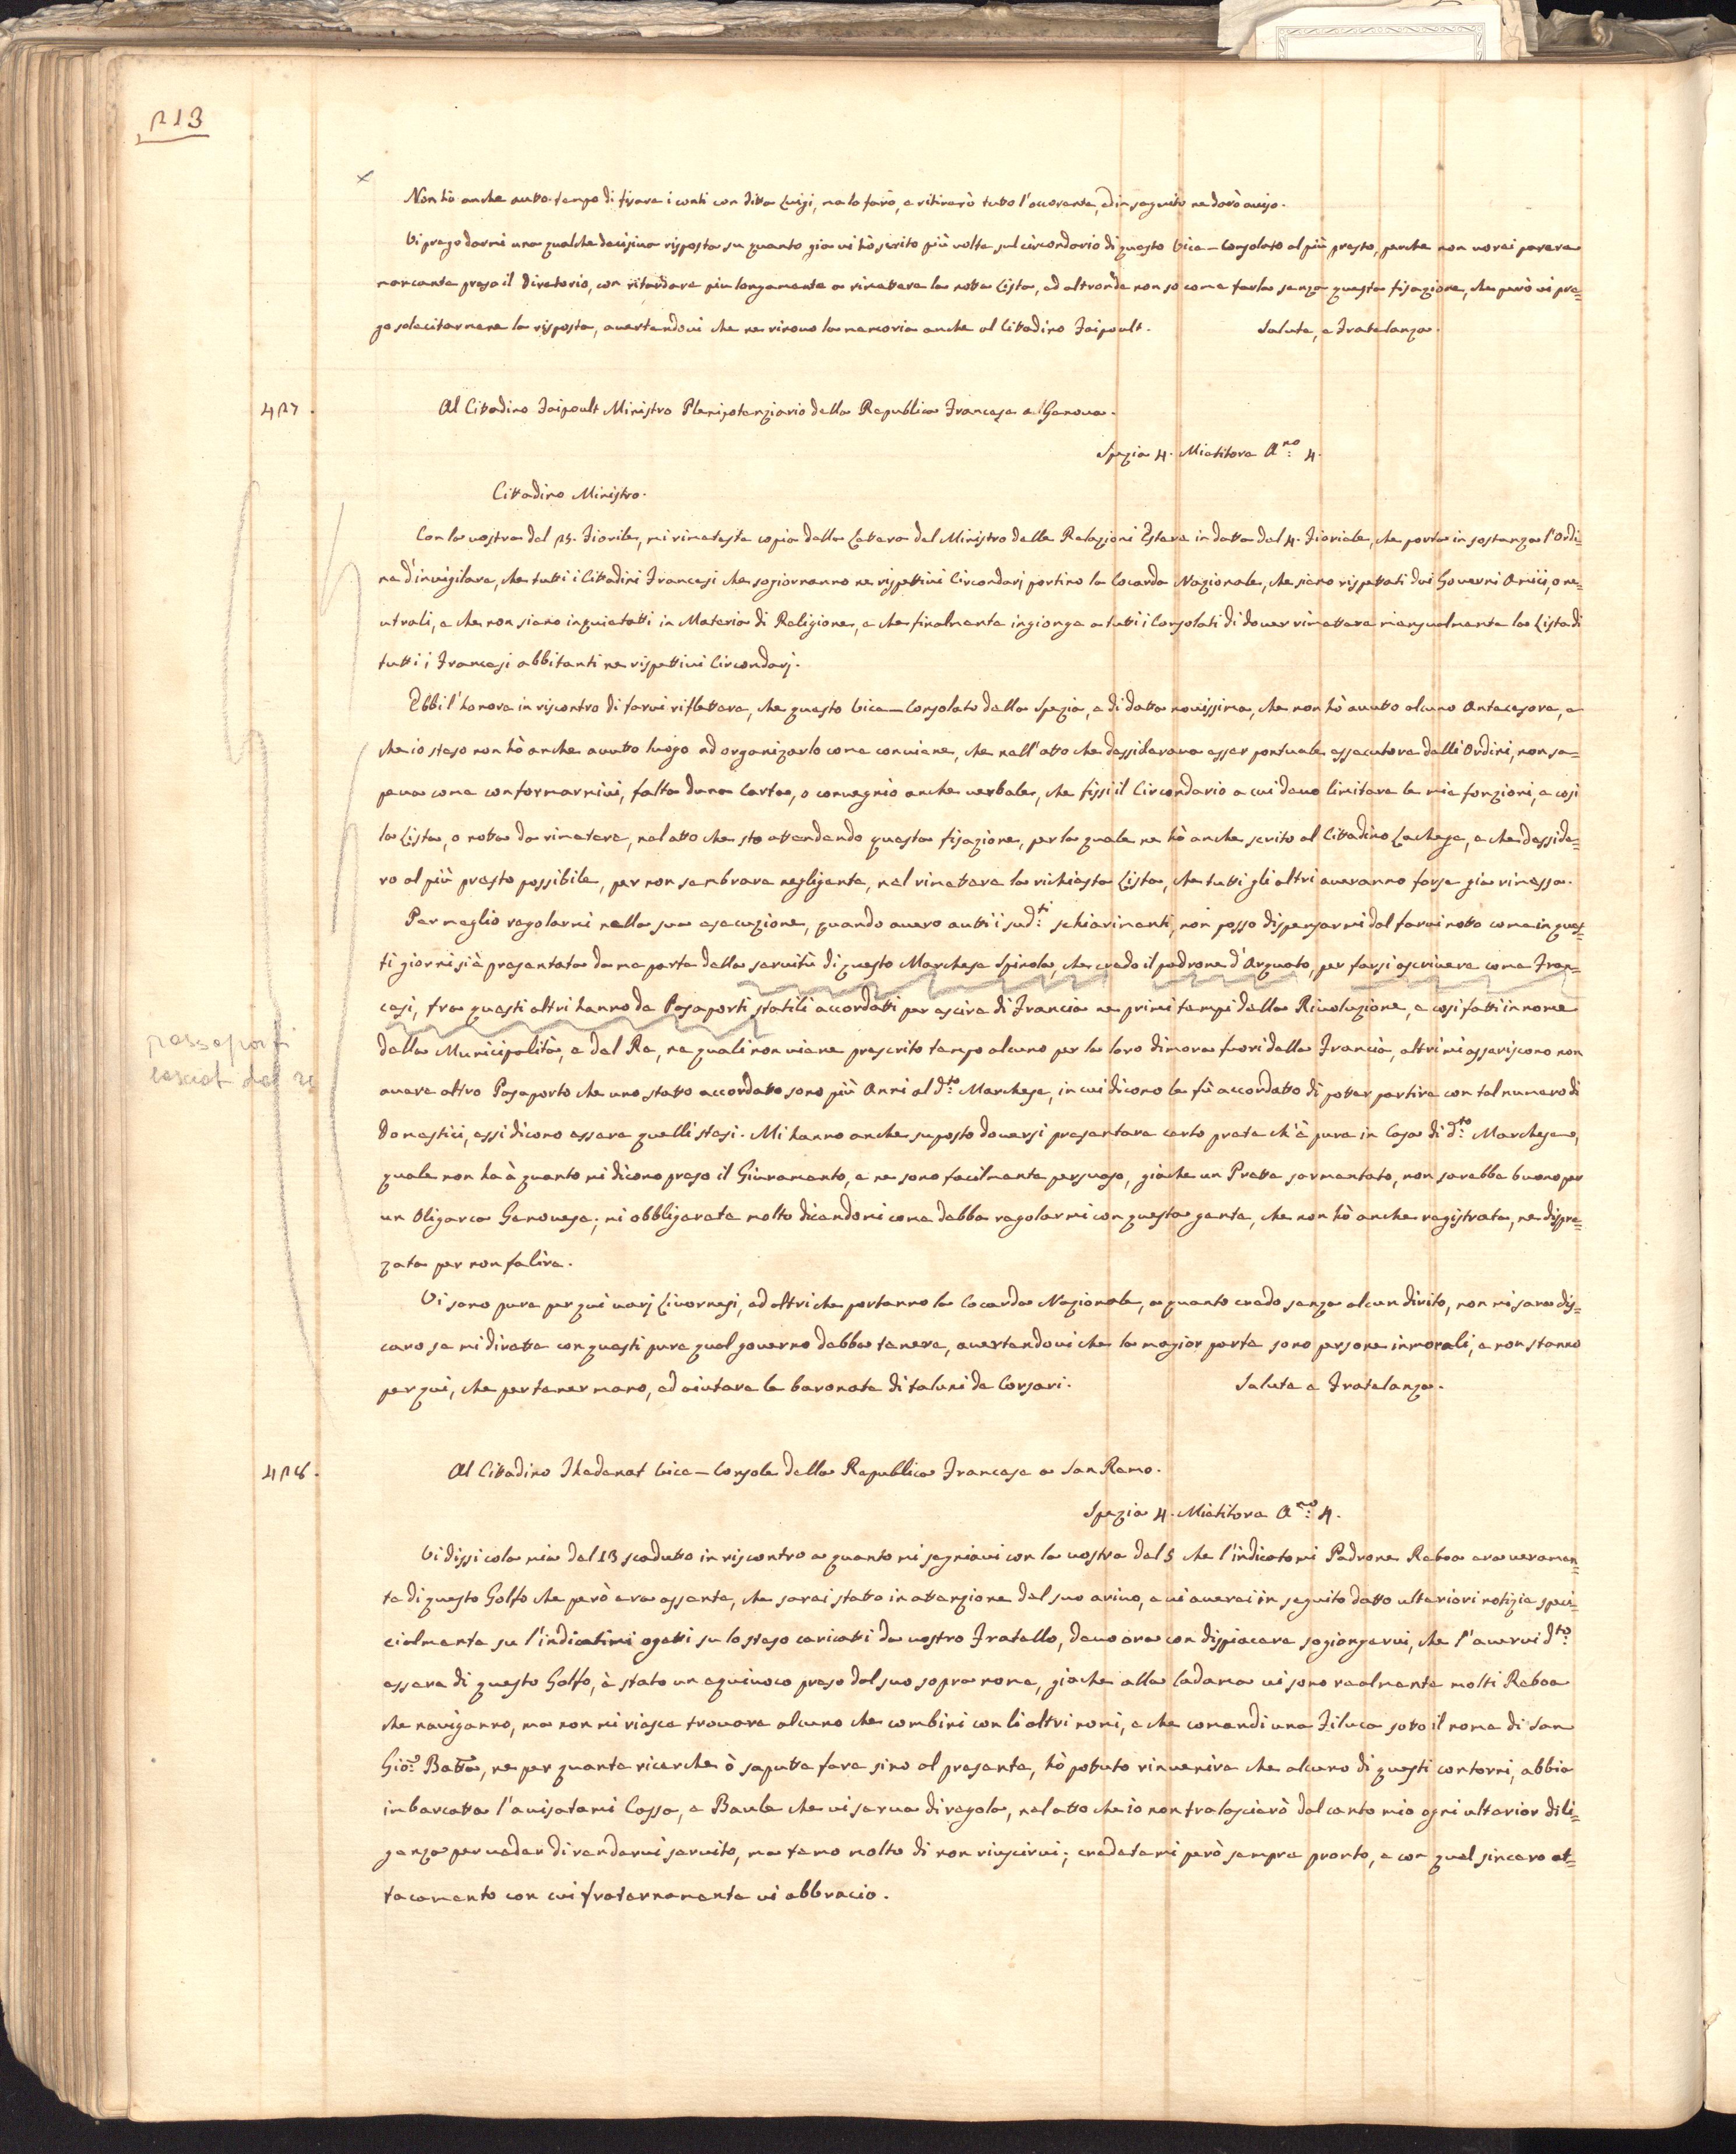 213
Non hò anche autto tempo di tirare i conti con ditto Luigi, ma lo farò, e ritirarò tutto l'accorente, ed in seguito ne darò aviso.
Vi prego darmi una qualche decisiva risposta su quanto già vi hò scrito più volte sul circondario di questo Vice-Consolato al più presto, perche non vorei parere
mancante preso il Diretorio, con ritardare piu longamente a rimettere la notta Lista, ed altronde non so come farla senza questa fisazione, che però vi pre=
go solecitarmene la risposta, avertendovi che ne rinovo la memoria anche al Cittadino Faipoult. Salute, e Fratelanza.
427. Al Cittadino Faipoult Ministro Plenipotenziario della Republica Francese a Genova.
Spezia 4. Mietitore A.no 4.
Cittadino Ministro.
Con la vostra del 25. Fiorile, mi rimeteste copia della Lettera del Ministro delle Relazioni Estere in datta del 4. Fioriale, che porta in sostanza l'Ordi=
ne d'invigilare, che tutti i Cittadini Francesi che sogiornanno ne rispettivi Circondarj portino la Cocarda Nazionale, che siano rispettati dai Governi Amici, o ne=
utrali, e che non siano inquietatti in Materia di Religione, e che finalmente ingionge a tutti i Consolati di dover rimettere mensualmente la Lista di
tutti i Francesi abbitanti ne rispettivi Circondarj.
Ebbi l'honore in riscontro di farvi riflettere, che questo Vice-Consolato della Spezia, e di datta novissima, che non hò avutto alcuno Antecesore, e
che io steso non hò anche avutto luogo ad organizarlo come conviene, che nell'atto che dessiderava esser pontuale essecutore delli Ordini, non sa=
peva come conformarmivi, falta d'una Carta, o convegniò anche verbale, che fissi il Circondario a cui devo limitare le mie fonzioni, e così
la Lista, o notta da rimetere, nel atto che sto attendendo questa fisazione, per la quale ne hò anche scrito al Cittadino Lacheze, e che desside=
ro al più presto possibile, per non sembrare negligente, nel rimettere la richiesta Lista, che tutti gli altri averanno forse già rimessa.
Per meglio regolarmi nella sua esecuzione, quando averò autti i sud.ti schiarimenti, non posso dispensarmi dal farvi notto come in ques=
ti giorni si è presentata da me parte della servitù di questo Marchese Spinola, che credo il padrone d'Arquato, per farsi ascrivere come Fran=
cesi, fra questi altri hanno de Pasaporti statili accordatti per escire di Francia ne primi tempi della Rivoluzione, e cosi fatti in nome
della Municipalità, e del Re, ne quali non viene prescrito tempo alcuno per la loro dimora fuori della Francia, altri mi asseriscono non
passaporti
lasciat dal re
avere altro Pasaporto che uno statto accordatto sono più Anni al d.to Marchese, in cui dicono le fù accordatto di potter partire con tal numero di
Domestici, essi dicono essere quelli stesi. Mi hanno anche suposto doversi presentare certo prete ch'è pure in Casa di d.to Marchese,
quale non ha à quanto mi dicono preso il Giuramento, e ne sono facilmente persuaso, giàche un Prette sermentato, non sarebbe buono per
un Oligarca Genovese; mi obbligarete molto dicendomi come debba regolarmi con questa gente, che non hò anche registrata, ne dispre=
zata per non falire.
Vi sono pure per qui varj Livornesi, ed altri che portanno la Cocarda Nazionale, a quanto credo senza alcun dirito, non mi sara dis=
caro se mi dirette con questi pure qual governo debba tenere, avertendovi che la magior parte sono persone inmorali, e non stanno
per qui, che per tener mano, ed aiutare le baronate di taluni de Corsari. Salute e Fratelanza.
428. Al Cittadino Thedenat Vice-Console della Republica Francese a San Remo.
Spezia 4. Mietitore A.no 4.
Vi dissi cola mia del 13 scadutto in riscontro a quanto mi segniavi con la vostra del 5 che l'indicatomi Padrone Reboa era veramen=
te di questo Golfo che però era assente, che sarei statto in attenzione del suo arivo, e vi averei in seguito datto ulteriori notizie spe=
cialmente su l'indicatimi ogetti su lo steso caricatti da vostro Fratello, devo ora con dispiacere sogiongervi, che l'avervi d.to
essere di questo Golfo, è stato un equivoco preso dal suo sopra nome, giàche alla Cadama vi sono realmente molti Reboa
che naviganno, ma non mi riesce trovare alcuno che combini con li altri nomi, e che comandi una Filuca sotto il nome di San
Gio: Batta, ne per quante ricerche ò sapute fare sino al presente, hò pottuto rinvenire che alcuno di questi contorni, abbia
imbarcatta l'avisatami Cassa, e Baule che vi serva di regola, nel atto che io non tralascierò dal canto mio ogni ulterior dili=
genza per veder di rendervi servito, ma temo molto di non riuscirvi; credetemi però sempre pronto, e con quel sincero at=
tacamento con cui fraternamente vi abbracio.